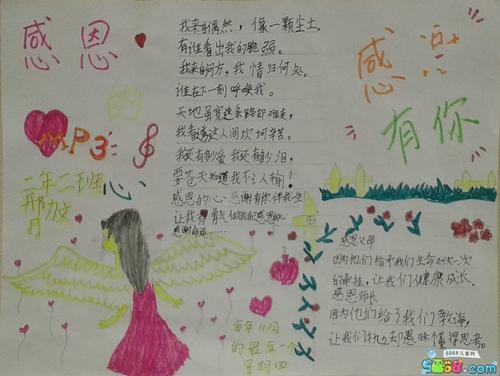 感恩
的
心
MP3
二年二班
我来自偶然，像一颗尘土，
有谁看出我的脆弱。
我来自何方，我情归何处，
谁在下一刻呼唤我。
天地虽宽这条路却难走，
我看遍这人间坎坷辛苦。
我还有多少爱 我还有多少泪，
要苍天知道我不认输！
感恩的心 感谢有你 伴我一生
让我有勇气做我自己感恩的心
感谢命运……
感恩
有你
感恩父母
因为他们给予我们生命
的牵挂，让我们健康成长。
感恩师长
因为他们给了我们教诲，
让我们抛却愚昧懂得思考。
每年11月
的最后一个
星期四
5068儿童网
5068.com